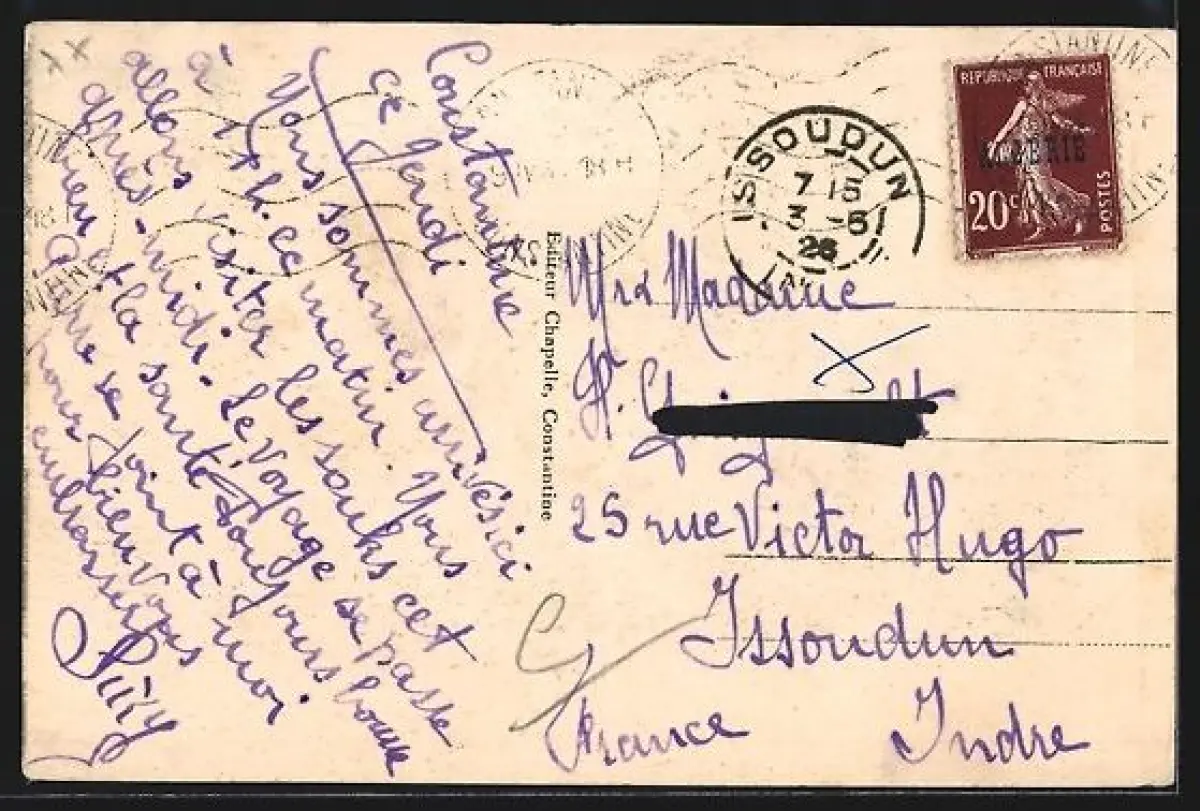 Constantine
ce Jeudi
Nous sommes arrivés ici
à h. ce matin. Nous
allons visiter les souks cet
après-midi. Le voyage se passe
bien et la santé toujours bonne
se joint à moi
pour bien vous
embrasser
Suzy
Editeur Chapelle, Constantine
Madame
H.
25 rue Victor Hugo
Issoudun
France Indre
REPUBLIQUE FRANÇAISE
ALGERIE
20c
POSTES
ISSOUDUN
7 15
3 -5
26
CONSTANTINE